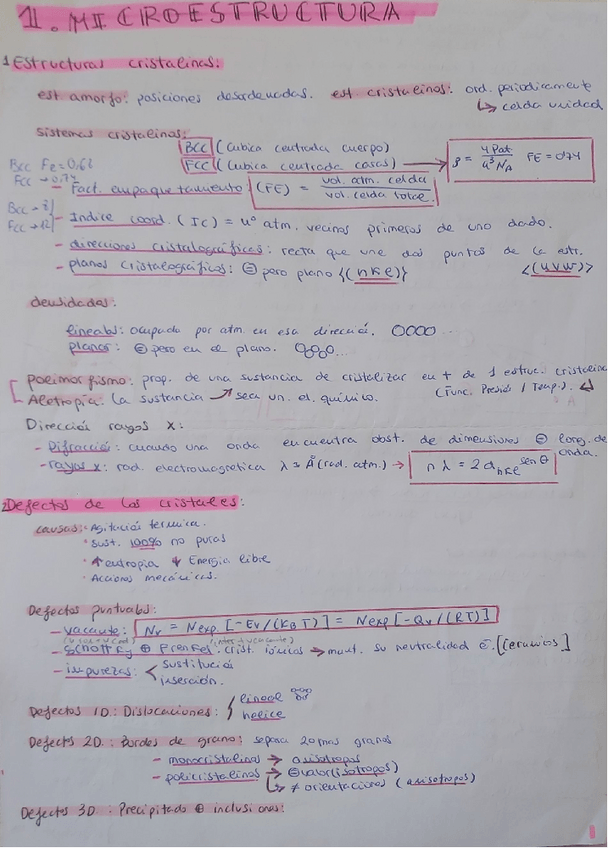 1. MICROESTRUCTURA
1 Estructuras cristalinas:
est amorfo: posiciones desordenadas. est cristalinos: ord. periodicamente
↳ celda unidad
Sistemas cristalinos:
BCC (Cubica centrada cuerpo)
FCC (Cubica centrada caras) → ρ = 4 Pat / a³ NA FE = 0,74
Bcc FE = 0,68
Fcc → 0,74
- Fact. empaquetamiento (FE) = vol. atm. celda / vol. celda total.
Bcc → 8
Fcc → 12
- Indice coord. (Ic) = nº atm. vecinos primeros de uno dado.
- direcciones cristalográficas: recta que une dos puntos de la estr. <(uvw)>
- planos cristalográficos: ⊜ pero plano {(hkl)}
densidades:
lineales: ocupado por atm. en esa direcció. OOOO...
planar: ⊜ pero en el plano.
Polimorfismo: prop. de una sustancia de cristalizar en + de 1 estruc. cristalina
(Func. Presió / Temp.)
Alotropia: la sustancia sea un el. químico.
Direcció rayos X:
- Difracció: cuando una onda encuentra obst. de dimensiones ⊜ long. de onda.
- rayos X: rad. electromagnetica λ ≈ Å (rad. atm.) → n λ = 2 dhkl sen θ
2 Defectos de los cristales:
causas: · Agitació termica.
· Sust. 100% no puras
· ↑ entropia ↓ Energia libre
· Acciones mecánicas.
Defectos puntuales:
- vacante: Nv = N exp. [-Ev/(KB T)] = N exp. [-Qv/(RT)]
- Schottky ⊕ Frenkel: crist. iónicos → mant. su neutralidad é. [ceramicos]
- impurezas: sustitució
inserción.
Defectos 1D: Dislocaciones: lineal
helice
Defectos 2D: Bordes de grano: separa zonas granos
- monocristalinos → anisotropos
- policristalinos → ⊜ valor (isotropos)
↳ ≠ orientaciones (anisotropos)
Defectos 3D: Precipitado ⊕ inclusiones:
1